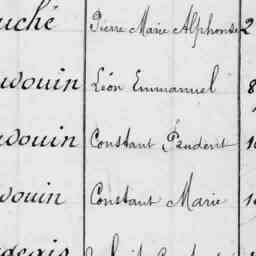 uché Pierre Marie Alphonse 2
douin Léon Emmanuel 8
douin Constant Prudent 1
douin Constant Marie 1